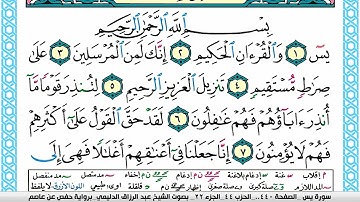 بِسْمِ ٱللَّهِ ٱلرَّحْمَٰنِ ٱلرَّحِيمِ
يسٓ ١ وَٱلْقُرْءَانِ ٱلْحَكِيمِ ٢ إِنَّكَ لَمِنَ ٱلْمُرْسَلِينَ ٣ عَلَىٰ
صِرَٰطٍ مُّسْتَقِيمٍ ٤ تَنزِيلَ ٱلْعَزِيزِ ٱلرَّحِيمِ ٥ لِتُنذِرَ قَوْمًا مَّآ
أُنذِرَ ءَابَآؤُهُمْ فَهُمْ غَٰفِلُونَ ٦ لَقَدْ حَقَّ ٱلْقَوْلُ عَلَىٰٓ أَكْثَرِهِمْ
فَهُمْ لَا يُؤْمِنُونَ ٧ إِنَّا جَعَلْنَا فِىٓ أَعْنَٰقِهِمْ أَغْلَٰلًا فَهِىَ إِلَى
سورة يس الصفحة ٤٤٠ الحزب ٤٤ الجزء ٢٢ بصوت الشيخ عبد الرزاق الدليمي برواية حفص عن عاصم